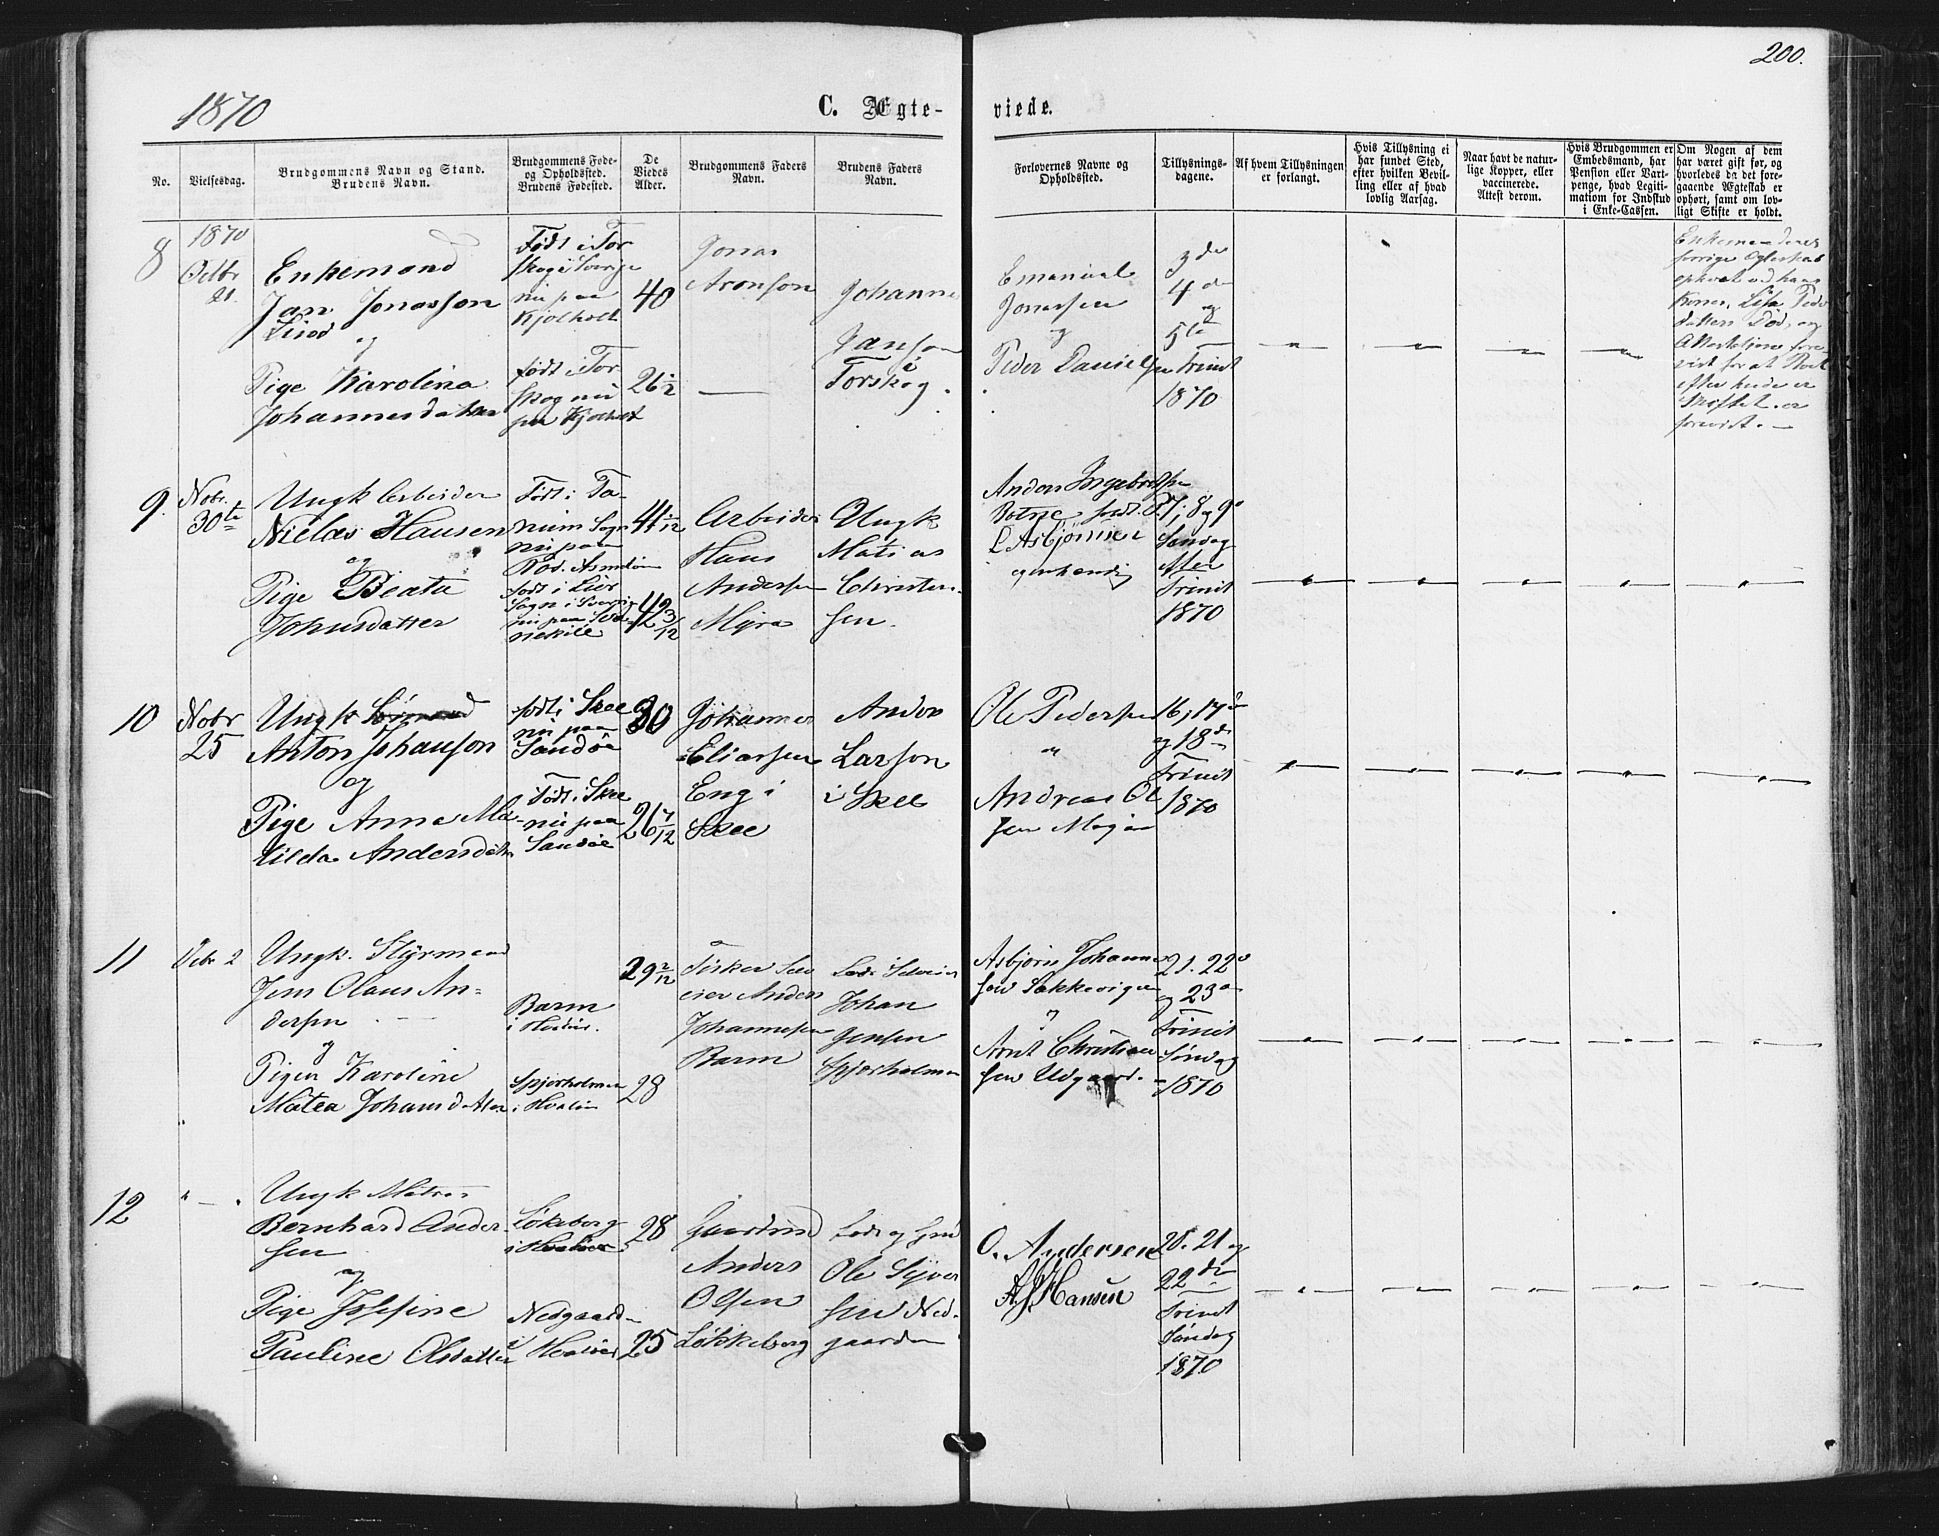 200.
1870
C. Ægte-
viede.
No.
Vielsesdag.
Brudgommens Navn og Stand.
Brudens Navn.
Brudgommens Føde-
og Opholdssted.
Brudens Fødested.
De
Viedes
Alder.
Brudgommens Faders
Navn.
Brudens Faders
Navn.
Forlovernes Navne og
Opholdssted.
Tillysnings-
dagene.
Af hvem Tillysningen
er forlangt.
Hvis Tillysning ei
har fundet Sted,
efter hvilken Bevil-
ling eller af hvad
lovlig Aarsag.
Naar havt de natur-
lige Kopper, eller
vaccinerede.
Attest derom.
Hvis Brudgommen er
Embedsmand, har
Pension eller Vart-
penge, hvad Legiti-
mation for Indskud
i Enke-Cassen.
Om Nogen af dem
har været gift før, og
hvorledes da det fore-
gaaende Ægteskab er
ophørt, samt om lov-
ligt Skifte er holdt.
8
1870
Octbr
21.
Enkemand
Jan Jonasson
Lind
og
Pige Karolina
Johannesdatter
Født i Tor
skog i Sverige
nu paa
Kjølholt
født i Tor
skog nu
paa Kjølholt
40
26 1/2
Jonas
Aronson
—
Johannes
Janson
i
Torskog.
Emanuel
Jonassen
og
Peder Danielsen
3de
4de
og
5te
Trinit
1870
Enkemandens
forrige Ægteskab
ophævet ved hans
Kones, Lisa Peders
datters Død, og
Attestation fore
vist for at Boet
efter hende er
skiftet. er
forevist. —
9.
Nobr.
30te
Ungk Arbeider
Niclas Hansen
og
Pige Beata
Johnsdatter
Født i Ta-
num Sogn
nu paa
Nod. Asmaløen
født i Lur
Sogn i Sverige
nu paa
nekile
41 1/12
42 3/12
Arbeider
Hans
Andersen
Myra
Ungk
Matias
Christen-
sen.
Anders Ingebretsen
Botne
L Asbjørnsen
egenhendig
7; 8 og 9de
Søndag
efter
Trinit
1870
10
Nobr
25
Ungk Sømand
Anton Johanson
og
Pige Anna Ma-
tilda Andersdatter
født i Skee
nu paa
Sandøe
Født i Skee
nu paa
Sandøe
30
26 7/12
Johannes
Eliassen
Eng i
Skee
Anders
Larson
i Skee
Ole Pedersen
"
Andreas Ol
sen
16, 17de
og 18de
Trinit
1870
11
Decbr 2
Ungk. Styrmand
Jens Olaus An-
dersen
og
Pigen Karoline
Matea Johansdatter
Barm
i Hvaler.
Spjærholmen
i Hvaler
29 2/12
28
Fisker Selv
eier Anders
Johannesen
Barm
Lods Selveier
Johan
Jensen
Spjærholmen
Asbjørn Johanne
sen Bækkevigen
og
Arnt Christian
sen Udgaard.
21. 22de
og 23de
Trinit
Søndag
1870
12
" — "
Ungk Matros
Bernhard Ander-
sen
og
Pige Josefine
Pauline Olsdatter
Løkeberg
i Hvaler
Nedgaarden
i Hvaler
28
25
Gaardmd
Anders
Olsen
Løkkeberg
Lods og Grd
Ole Syver
sen Ned-
gaarden
O. Andersen
A J Hansen
20. 21 og
22de
Trinit
Søndag
1870